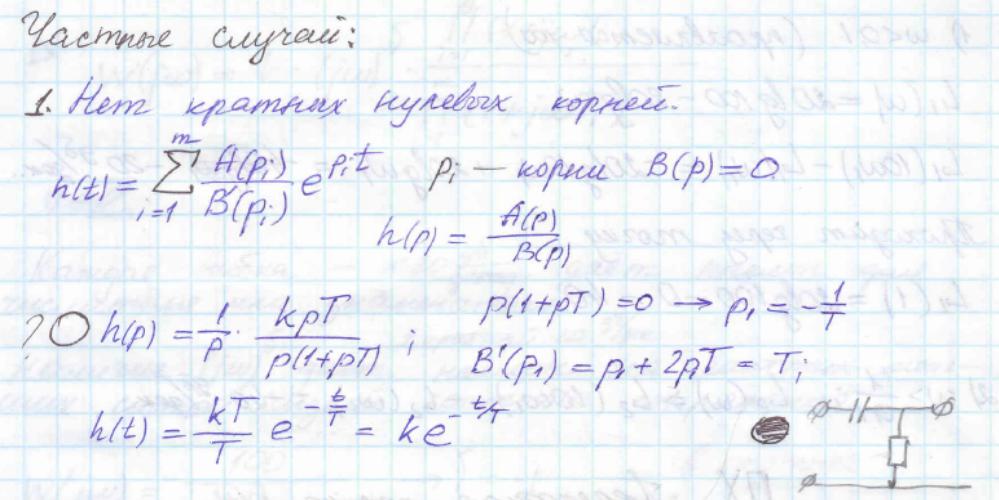 Частные случай:
1. Нет кратных нулевых корней.
h(t) = \sum_{i=1}^{m} \frac{A(p_i)}{B'(p_i)} e^{p_i t}   p_i — корни B(p) = 0
h(p) = \frac{A(p)}{B(p)}
? h(p) = \frac{1}{p} \cdot \frac{kpT}{p(1+pT)} ;   p(1+pT) = 0 → p_1 = -\frac{1}{T}
B'(p_1) = p_1 + 2p_1T = T;
h(t) = \frac{kT}{T} e^{-\frac{t}{T}} = ke^{-t/T}